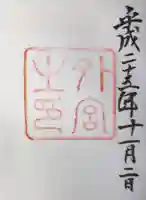 平成二十五年十一月二日
外宮
之印